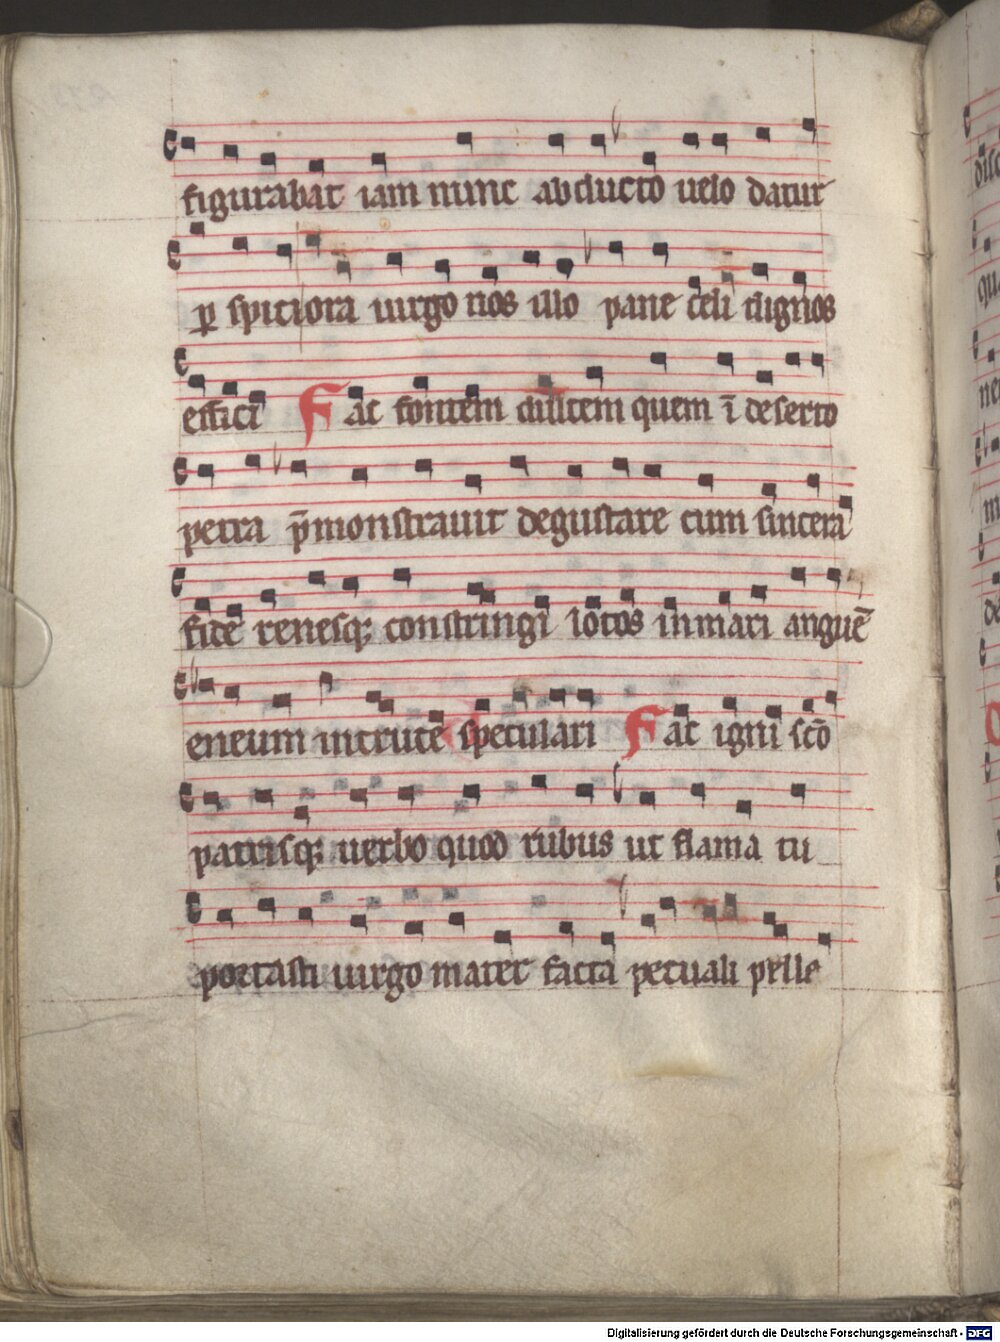 figurabat iam nunc abducto uelo datur
p̲ spiciora uirgo nos illo pane celi dignos
effici Fac fontem dulcem quem ī deserto
petra p̄monstrauit degustare cum sincera
fide renesq; constringi lotos in mari anguē
eneum in cruce speculari Fac igni sc̄o
patrisq; uerbo quod rubus ut flama tu
portasti uirgo mater facta petuali pelle
disc
qu
ne
m
de
Digitalisierung gefördert durch die Deutsche Forschungsgemeinschaft - DFG